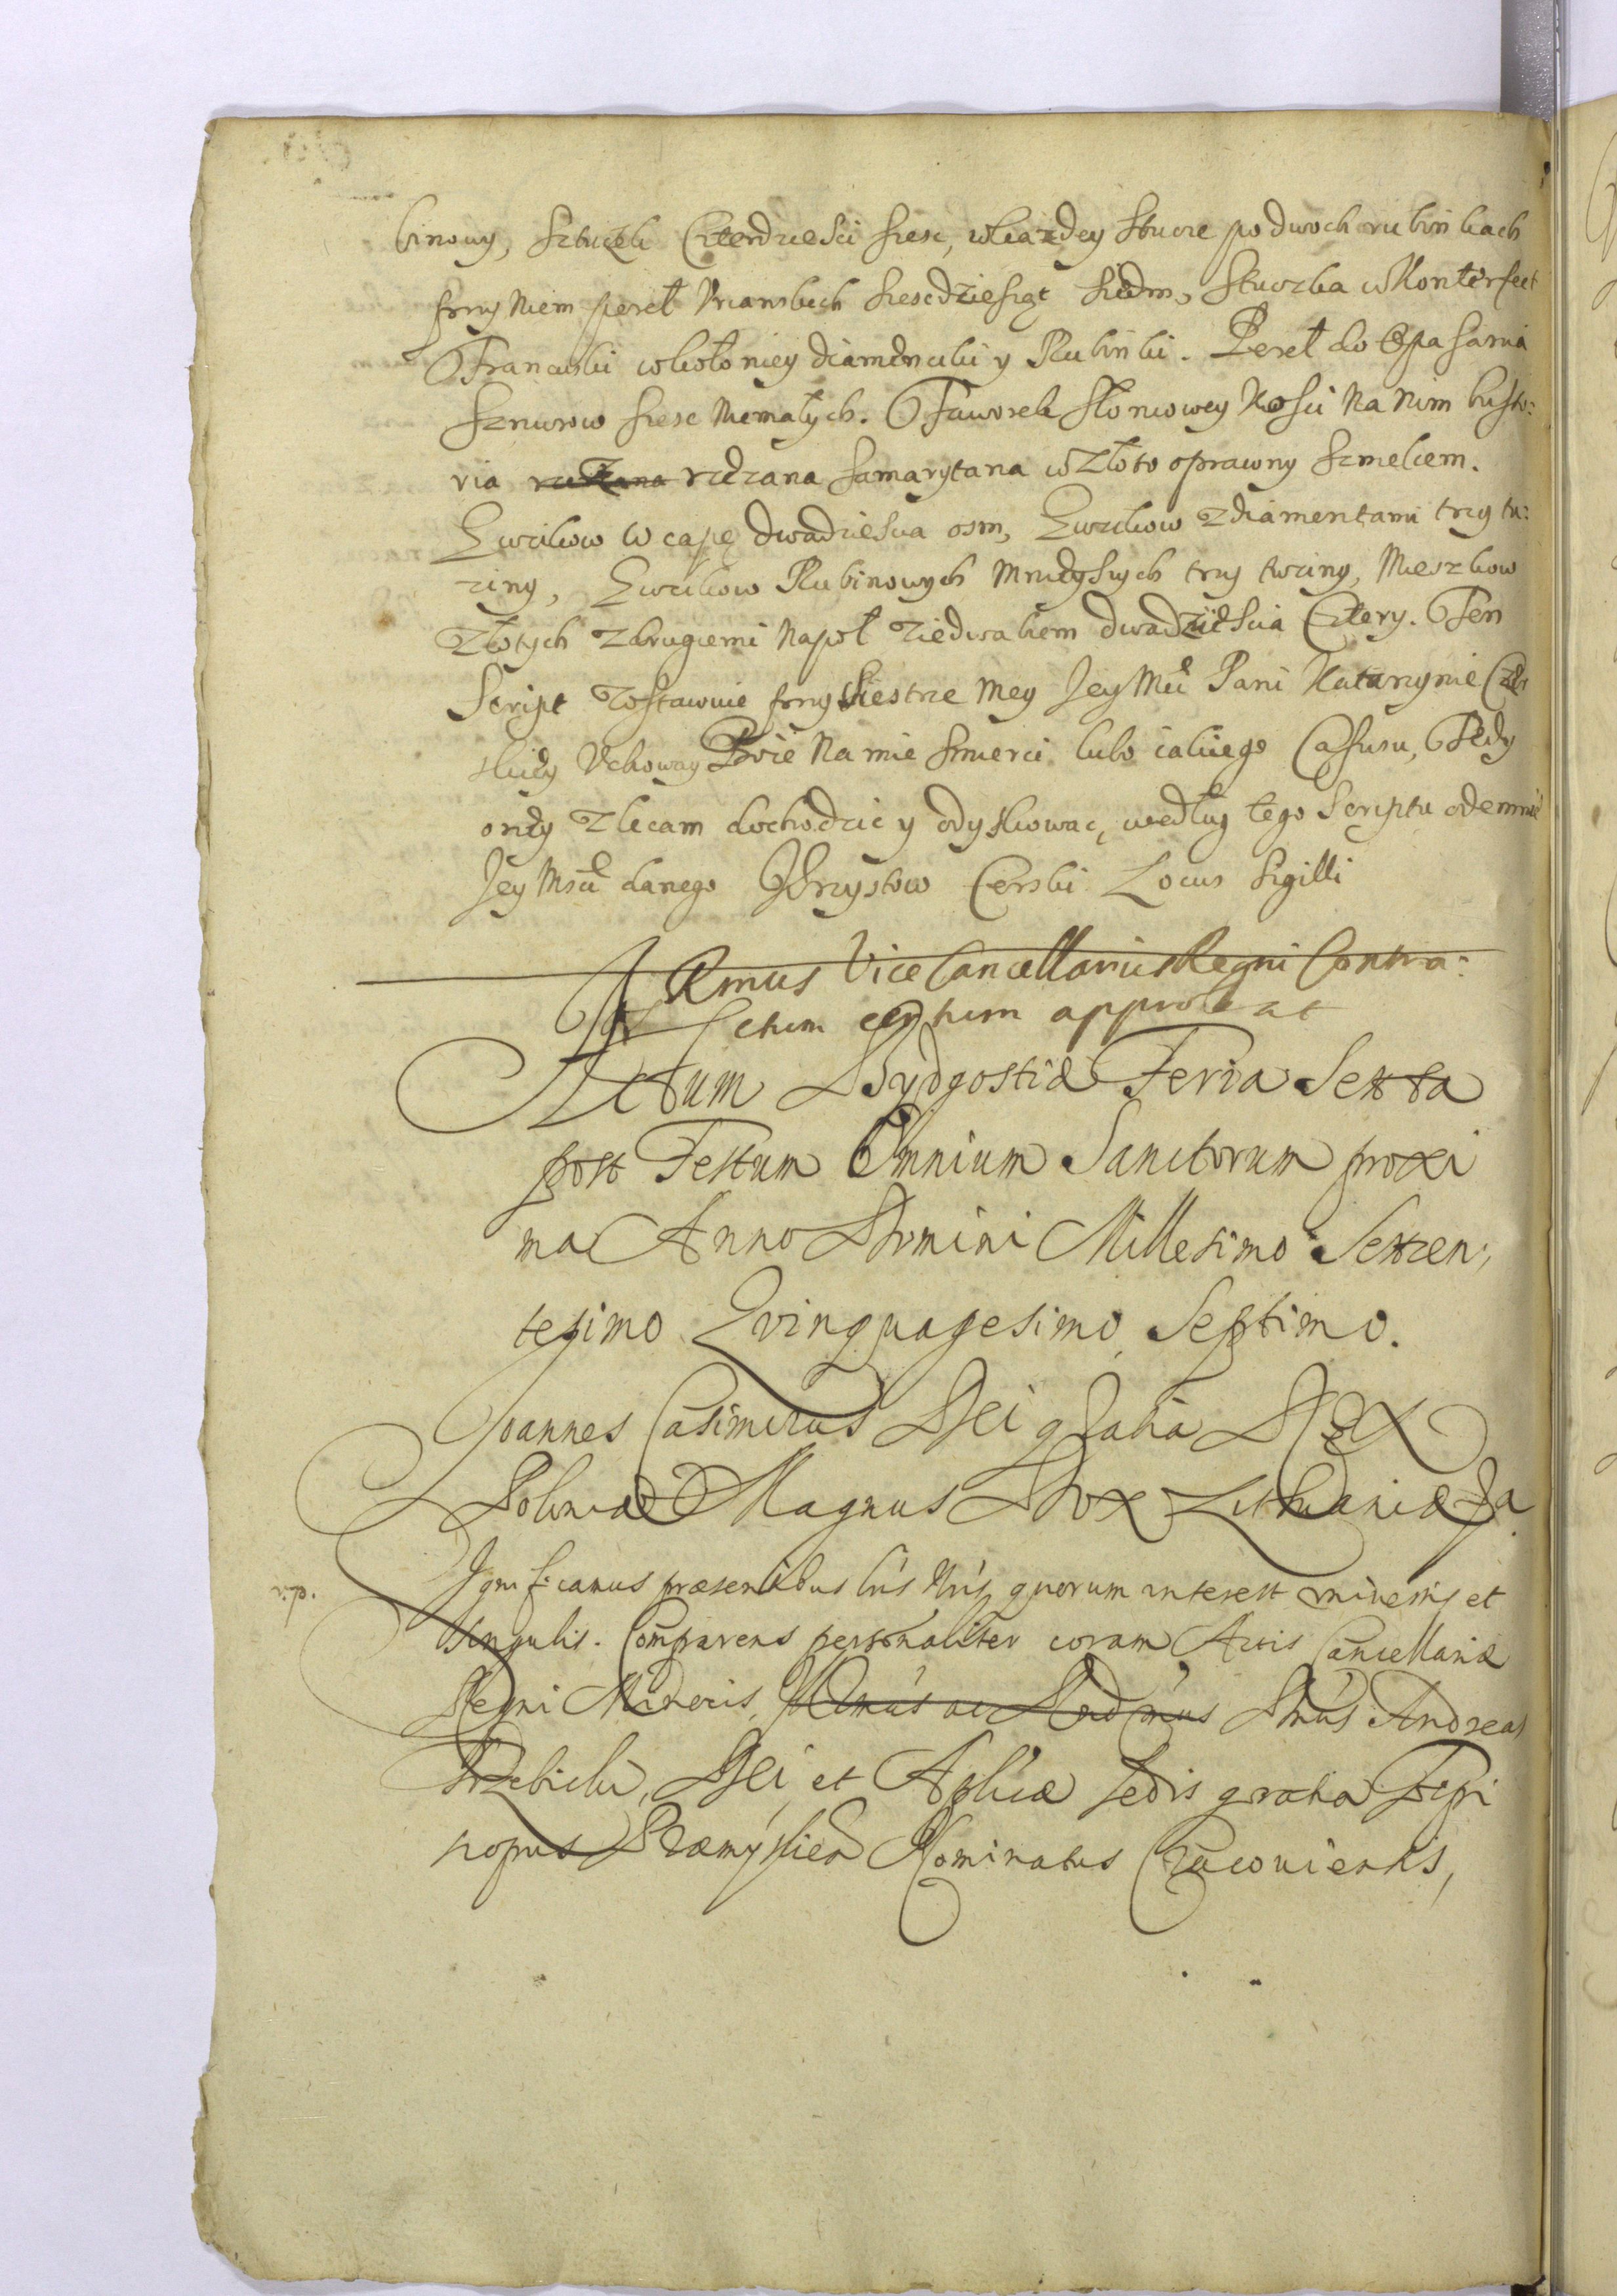 binowy, sztuczek Czterdziesci szesc, w kazdey sztucze po dwoch rubinkach
przy niem pereł Vrianskich szescdziesiąt siedm, sztuczka w Konterfect
Francuski wkoło niey diamencziki y Rubinki. Pereł do Opasania
sznurow szesc niemałych. Faworek słoniowey Kosci na nim histo:
ria rzezana samarytana w złoto oprawny szmelcem.
Cwiekow w capę dwadziescia osm, Cwiekow z diamentami trzy tu:
ziny, Cwiekow Rubinowych mnieyszych trzy tuziny, Mieszkow
złotych z drugiemi napoł ziedwabiem dwadziescia Cztery. Ten
Script zostawuie przy Siestrze mey Jey Mci Pani Katarzynie
Vchoway Boże na mie smierci lubo iakiego Cassusu, Tedy
oney zlecam dochodzic y odyskowac, według tego Scriptu odemnie
Jey Msci danego Krzysztow Cerski Locus Sigilli
Rmus Vice Cancellarius Regni Contra:
ctum approbat
Actum Bydgostiæ Feria Sexta
post Festum Omnium Sanctorum proxi
ma Anno Domini Millesimo Sexcen:
tesimo Qvinquagesimo Septimo.
Joannes Casimirus Dei gratia Rex
Poloniæ Magnus Dux Lithuaniæ
Significamus præsentibus lris Nris quorum interest universis et
singulis. Comparens personaliter coram Actis Cancellariæ
Regni Minoris, Illmus ac Rndmus Dnus Andreas
Trzebicki, Dei et Aplicæ sedis gratia Epi
scopus Præmyslien Nominatus Cracoviensis,